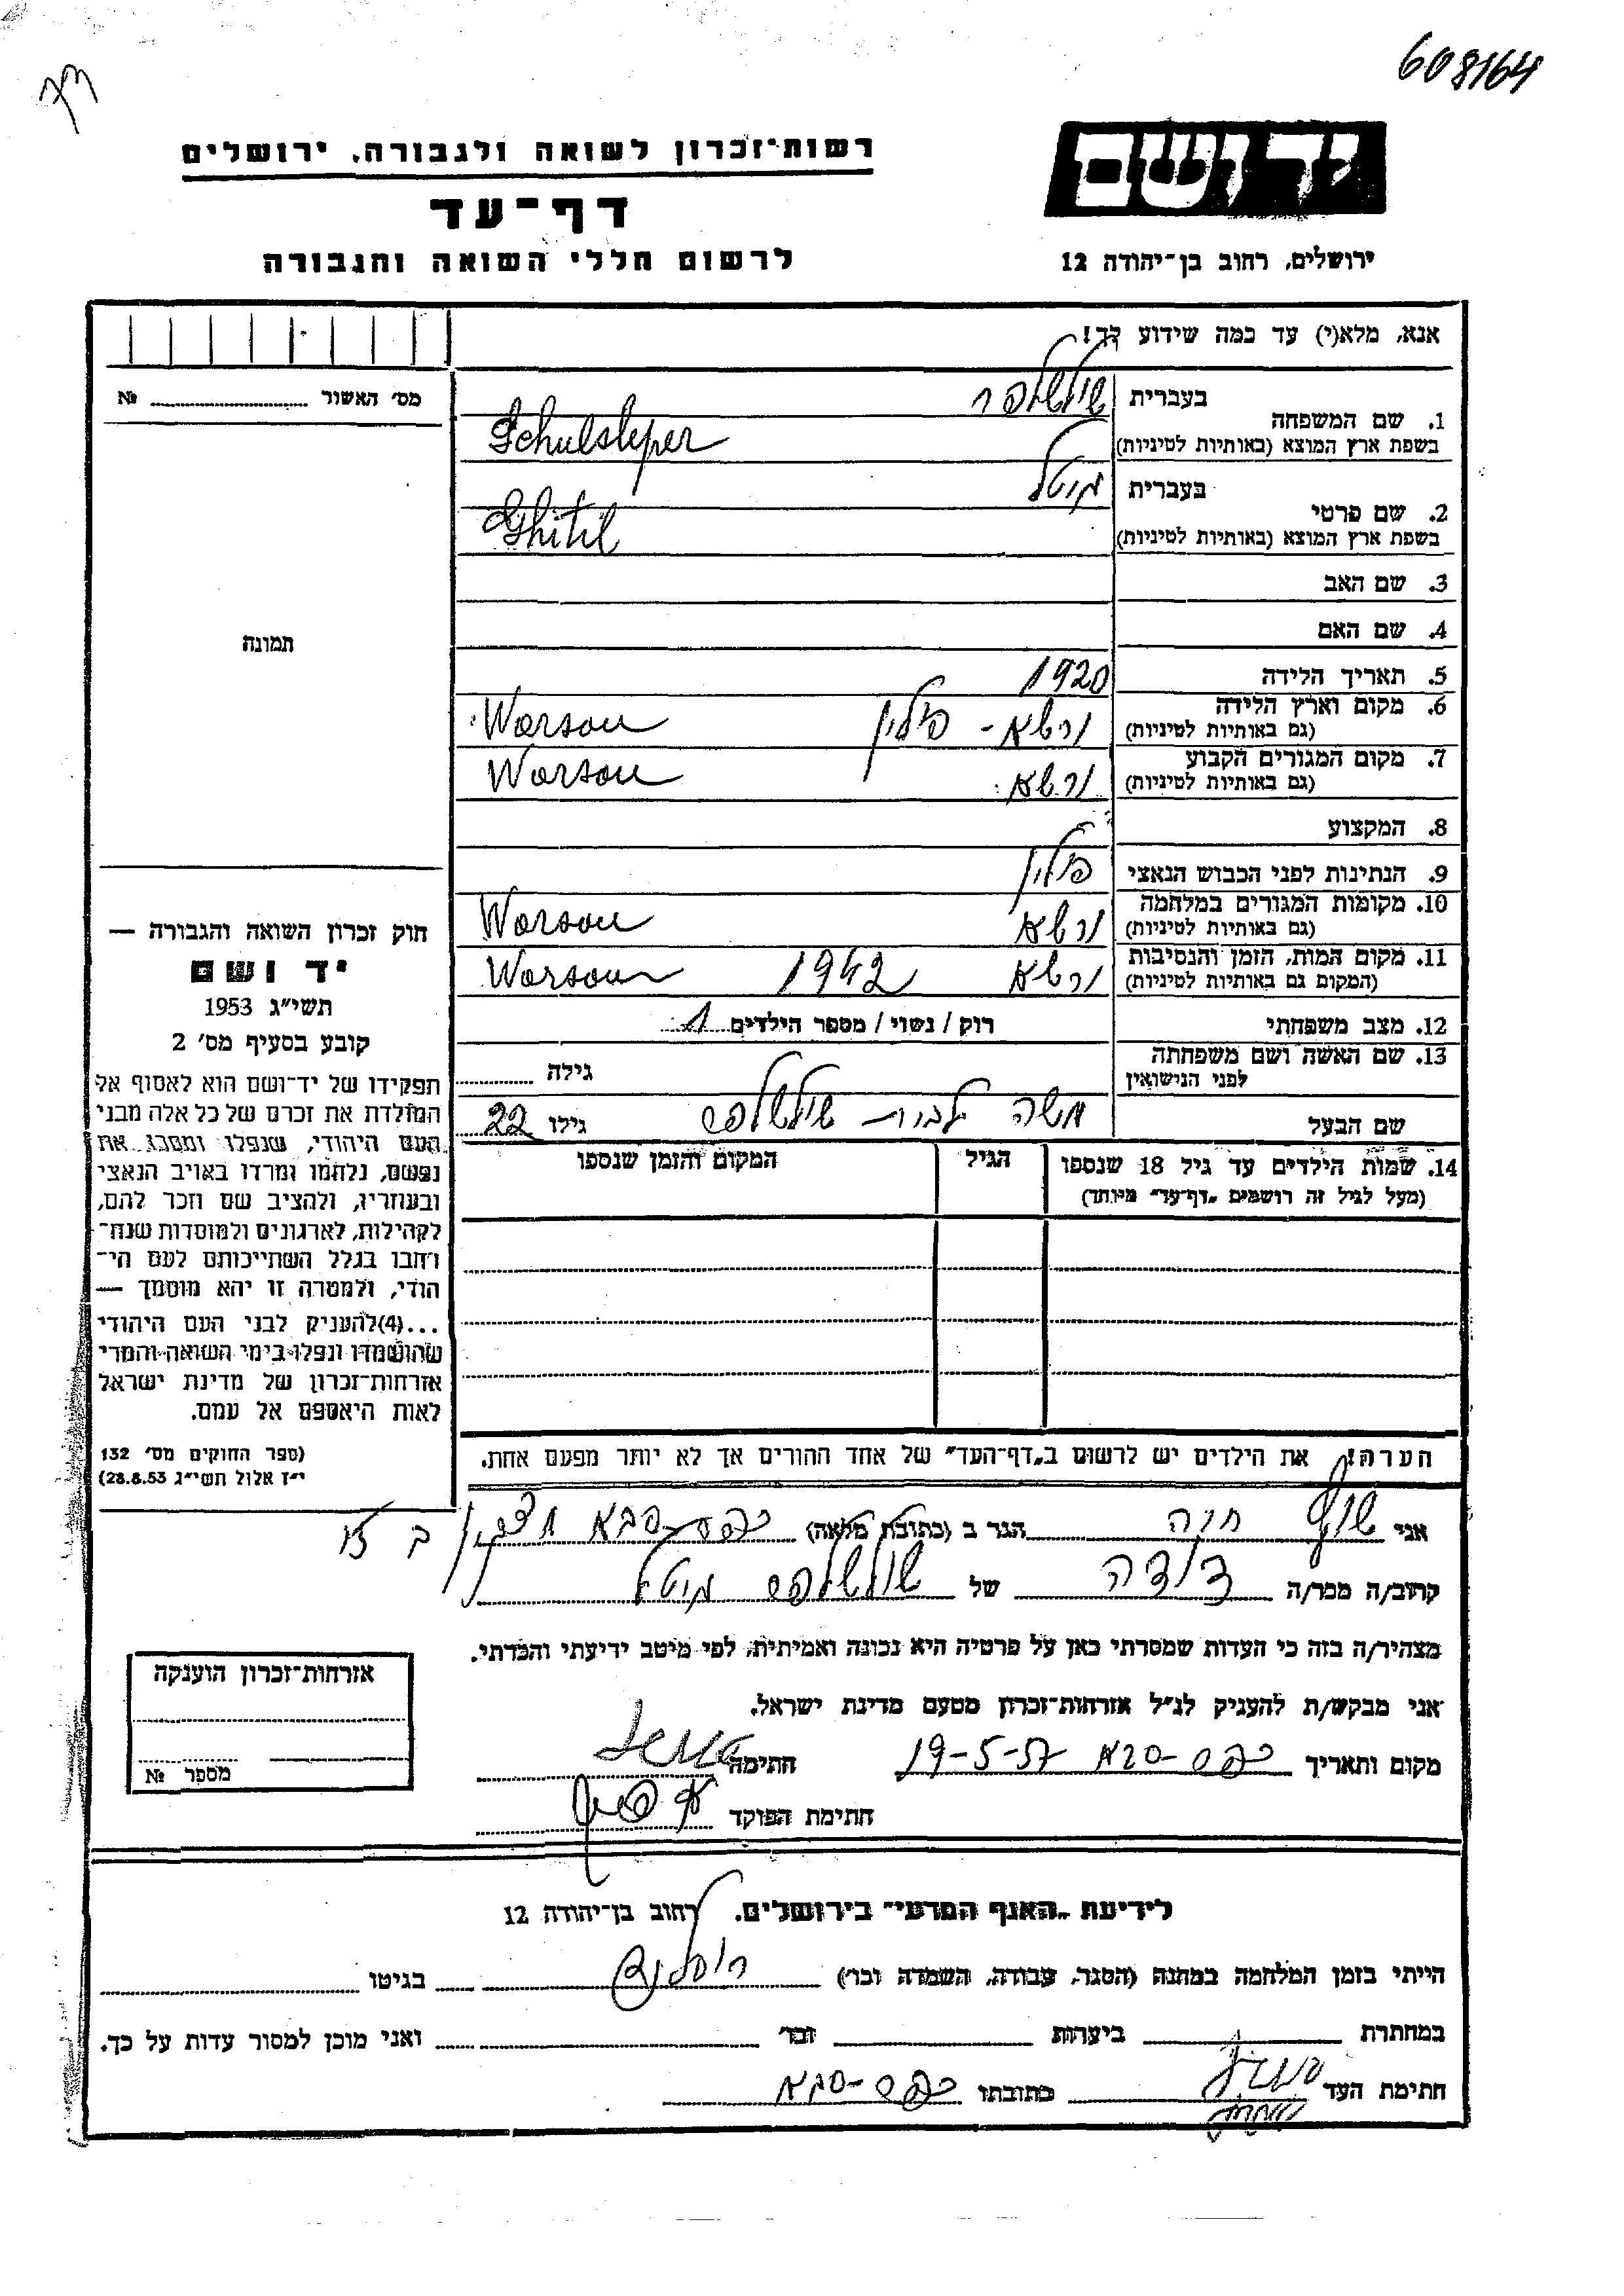 608164
רשות־זכרון לשואה ולגבורה, ירושלים
יד ושם
דף־עד
לרשום חללי השואה והגבורה
ירושלים, רחוב בן־יהודה 12
אנא, מלא(י) עד כמה שידוע לך!
מס׳ האשור № 
1. שם המשפחה
בעברית שולשלפר
בשפת ארץ המוצא (באותיות לטיניות) Schulsleper
2. שם פרטי
בעברית גיטל
בשפת ארץ המוצא (באותיות לטיניות) Ghitil
3. שם האב
4. שם האם
תמונה
5. תאריך הלידה 1920
6. מקום וארץ הלידה ורשא - פולין Warsau
(גם באותיות לטיניות)
7. מקום המגורים הקבוע ורשא Warsau
(גם באותיות לטיניות)
8. המקצוע
9. הנתינות לפני הכבוש הנאצי פולין
10. מקומות המגורים במלחמה ורשא Warsau
(גם באותיות לטיניות)
11. מקום המות, הזמן והנסיבות ורשא 1942 Warsau
(המקום גם באותיות לטיניות)
12. מצב משפחתי רוק / נשוי / מספר הילדים 1
13. שם האשה ושם משפחתה גילה
לפני הנישואין
שם הבעל משה שולשלפר גילו 22
14. שמות הילדים עד גיל 18 שנספו הגיל המקום והזמן שנספו
(מעל לגיל זה רושמים „דף־עד״ מיוחד)
חוק זכרון השואה והגבורה —
יד ושם
תשי״ג 1953
קובע בסעיף מס׳ 2
תפקידו של יד־ושם הוא לאסוף אל
המולדת את זכרם של כל אלה מבני
העם היהודי, שנפלו ומסרו את
נפשם, נלחמו ומרדו באויב הנאצי
ובעוזריו, ולהציב שם וזכר להם,
לקהילות, לארגונים ולמוסדות שנח־
רבו בגלל השתייכותם לעם הי־
הודי, ולמטרה זו יהא מוסמך —
...(4)להעניק לבני העם היהודי
שהושמדו ונפלו בימי השואה והמרי
אזרחות־זכרון של מדינת ישראל
לאות היאספם אל עמם.
(ספר החוקים מס׳ 132
י״ז אלול תשי״ג 28.8.53)
הערה! את הילדים יש לרשום ב„דף־העד״ של אחד ההורים אך לא יותר מפעם אחת.
אני חוה הגר ב (כתובת מלאה) כפר-סבא
קרוב/ה מכר/ה דודה של שולשלפר גיטל
מצהיר/ה בזה כי העדות שמסרתי כאן על פרטיה היא נכונה ואמיתית, לפי מיטב ידיעתי והכרתי.
אני מבקש/ת להעניק לנ״ל אזרחות־זכרון מטעם מדינת ישראל.
מקום ותאריך כפר-סבא 19-5-57 חתימה
חתימת הפוקד
אזרחות־זכרון הוענקה
מספר №
לידיעת „האגף המדעי״ בירושלים. רחוב בן־יהודה 12
הייתי בזמן המלחמה במחנה (הסגר, עבודה, השמדה וכו׳) בגיטו
במחתרת ביערות וכו׳ ואני מוכן למסור עדות על כך.
חתימת העד כתובתו כפר-סבא